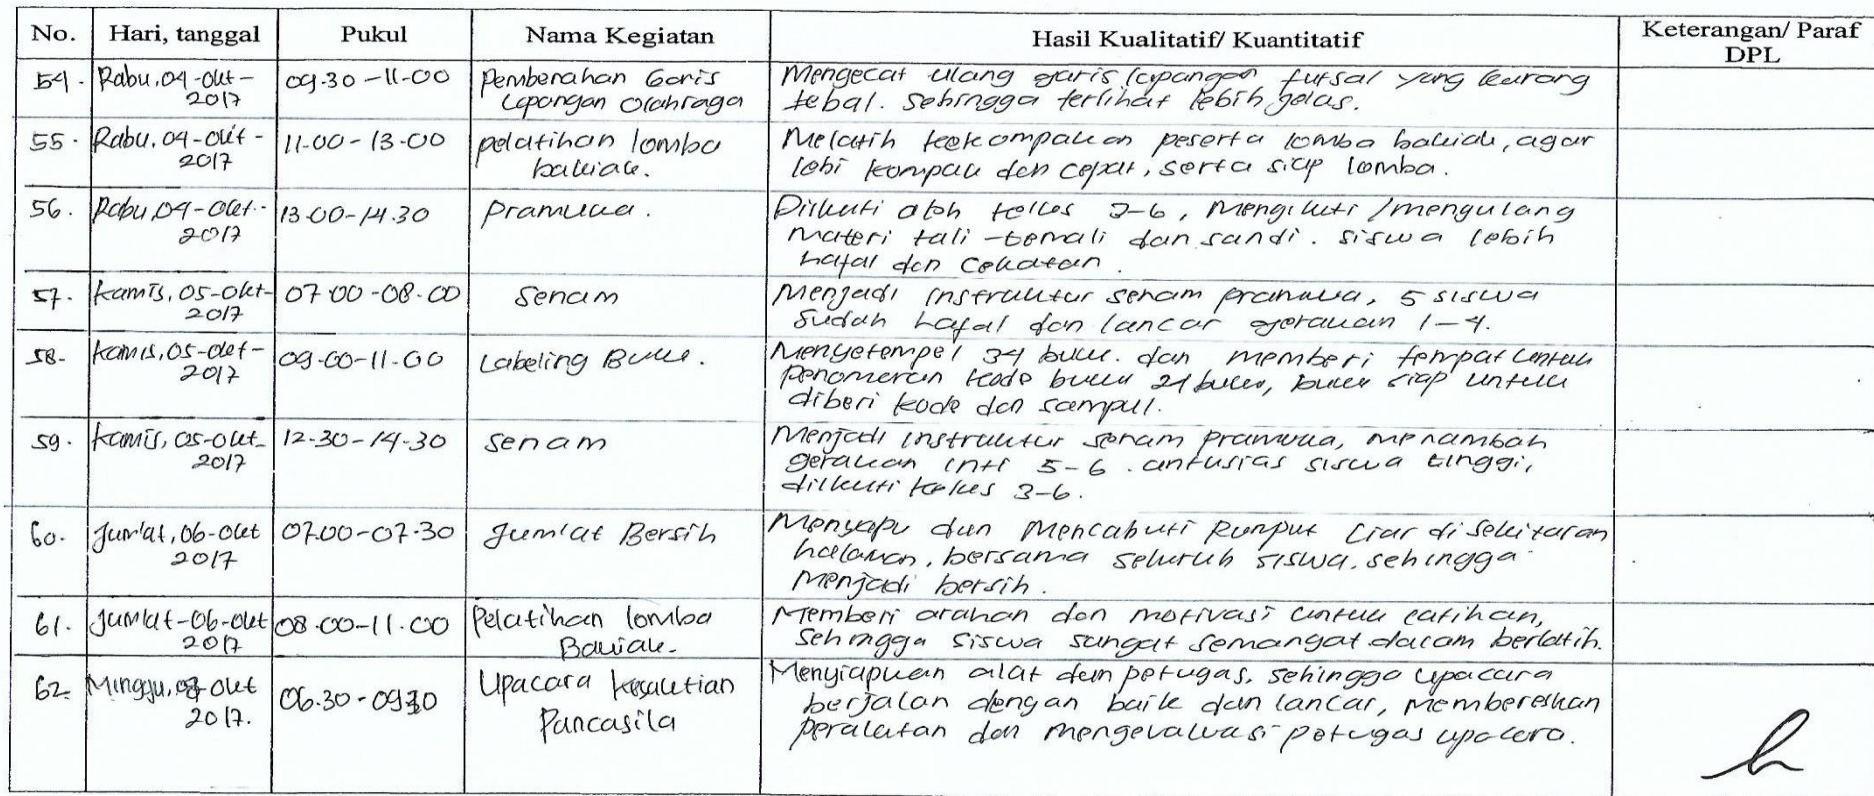 No. Hari, tanggal Pukul Nama Kegiatan Hasil Kualitatif/ Kuantitatif Keterangan/ Paraf DPL
54. Rabu, 04-Okt-2017 09.30-11.00 Pemberahan Garis Lapangan Olahraga
Mengecat ulang garis lapangan futsal yang kurang
tebal. Sehingga terlihat lebih jelas.
55. Rabu, 04-Okt-2017 11.00-13.00 pelatihan lomba bakiak.
Melatih kekompakan peserta lomba bakiak, agar
lebi kompak dan cepat, serta siap lomba.
56. Rabu, 04-Okt-2017 13.00-14.30 Pramuka.
Diikuti oleh kelas 2-6, Mengikuti/mengulang
materi tali-temali dan sandi. siswa lebih
hafal dan cekatan.
57. Kamis, 05-Okt-2017 07.00-08.00 Senam
Menjadi instruktur senam pramuka, 5 siswa
sudah hafal dan lancar gerakan 1-4.
58. Kamis, 05-Okt-2017 09.00-11.00 Labeling Buku.
Menyetempel 34 buku. dan memberi tempat untuk
penomeran kode buku 21 buku, buku siap untuk
diberi kode dan sampul.
59. Kamis, 05-Okt-2017 12.30-14.30 senam
Menjadi instruktur senam pramuka, menambah
gerakan inti 5-6. antusias siswa tinggi,
diikuti kelas 3-6.
60. Jum'at, 06-Okt 2017 07.00-07.30 Jum'at Bersih
Menyapu dan Mencabuti Rumput Liar di sekitaran
halaman, bersama seluruh siswa, sehingga
menjadi bersih.
61. Jum'at-06-Okt 2017 08.00-11.00 Pelatihan lomba Bakiak.
Memberi arahan dan motivasi untuk latihan,
sehingga siswa sangat semangat dalam berlatih.
62. Minggu, Okt 2017. 06.30- Upacara Kesaktian Pancasila
Menyiapkan alat dan petugas, sehingga upacara
berjalan dengan baik dan lancar, membereskan
peralatan dan mengevaluasi petugas upacara.